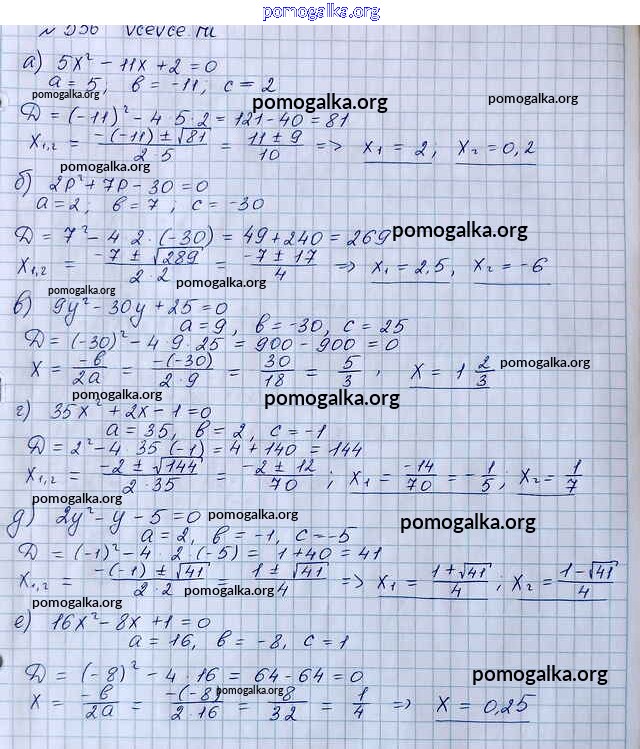 pomogalka.org
N 556 vcevce.ru
а) 5x² - 11x + 2 = 0
a = 5, b = -11, c = 2
pomogalka.org
pomogalka.org
pomogalka.org
D = (-11)² - 4 · 5 · 2 = 121 - 40 = 81
x₁,₂ = (-(-11) ± √81)/(2·5) = (11 ± 9)/10 => x₁ = 2, x₂ = 0,2
pomogalka.org
б) 2p² + 7p - 30 = 0
a = 2; b = 7; c = -30
D = 7² - 4 · 2 · (-30) = 49 + 240 = 269
pomogalka.org
x₁,₂ = (-7 ± √289)/(2·2) = (-7 ± 17)/4 => x₁ = 2,5, x₂ = -6
pomogalka.org
в) 9y² - 30y + 25 = 0
a = 9, b = -30, c = 25
D = (-30)² - 4 · 9 · 25 = 900 - 900 = 0
x = -b/2a = -(-30)/(2·9) = 30/18 = 5/3, x = 1 2/3
pomogalka.org
pomogalka.org
pomogalka.org
г) 35x² + 2x - 1 = 0
a = 35, b = 2, c = -1
D = 2² - 4 · 35 · (-1) = 4 + 140 = 144
x₁,₂ = (-2 ± √144)/(2·35) = (-2 ± 12)/70; x₁ = -14/70 = -1/5; x₂ = 1/7
pomogalka.org
д) 2y² - y - 5 = 0
pomogalka.org
pomogalka.org
a = 2, b = -1, c = -5
D = (-1)² - 4 · 2 · (-5) = 1 + 40 = 41
x₁,₂ = (-(-1) ± √41)/(2·2) = (1 ± √41)/4 => x₁ = (1+√41)/4; x₂ = (1-√41)/4
pomogalka.org
pomogalka.org
е) 16x² - 8x + 1 = 0
a = 16, b = -8, c = 1
D = (-8)² - 4 · 16 = 64 - 64 = 0
pomogalka.org
x = -b/2a = -(-8)/(2·16) = 8/32 = 1/4 => x = 0,25
pomogalka.org